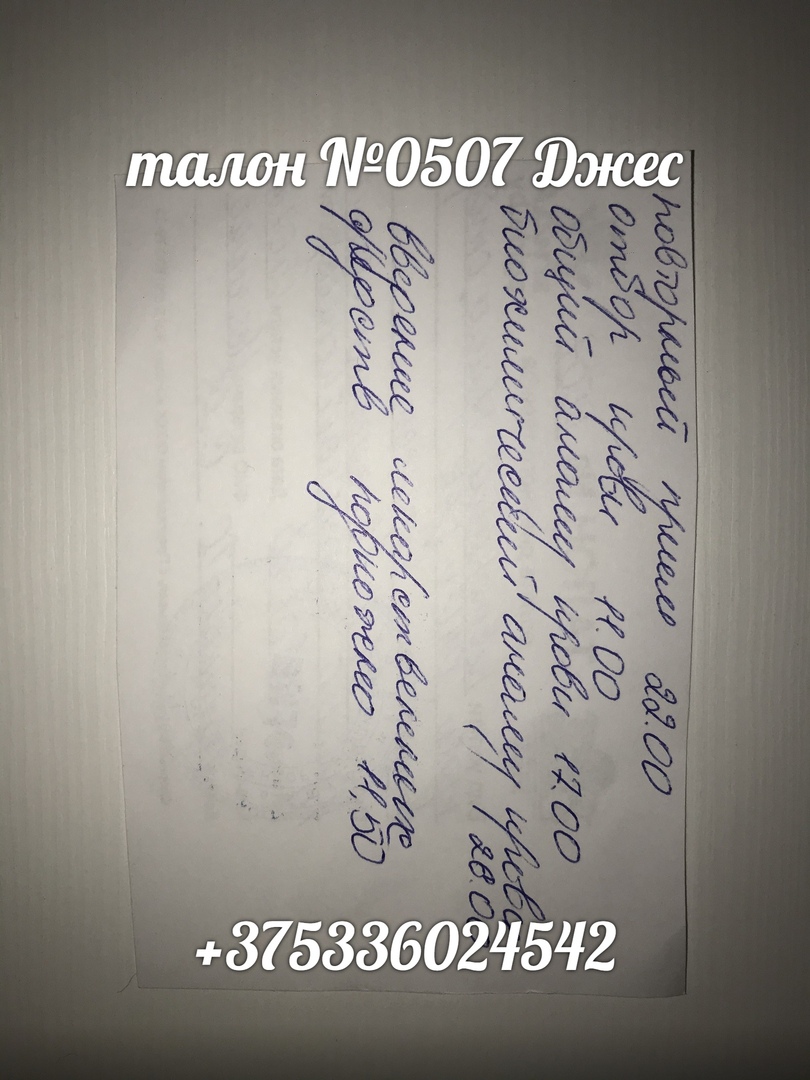 талон №0507 Джес
повторный прием 22.00
отбор крови 11.00
общий анализ крови 17.00
биохимический анализ крови
28.00
введение лекарственных
средств подкожно 11,50
+375336024542